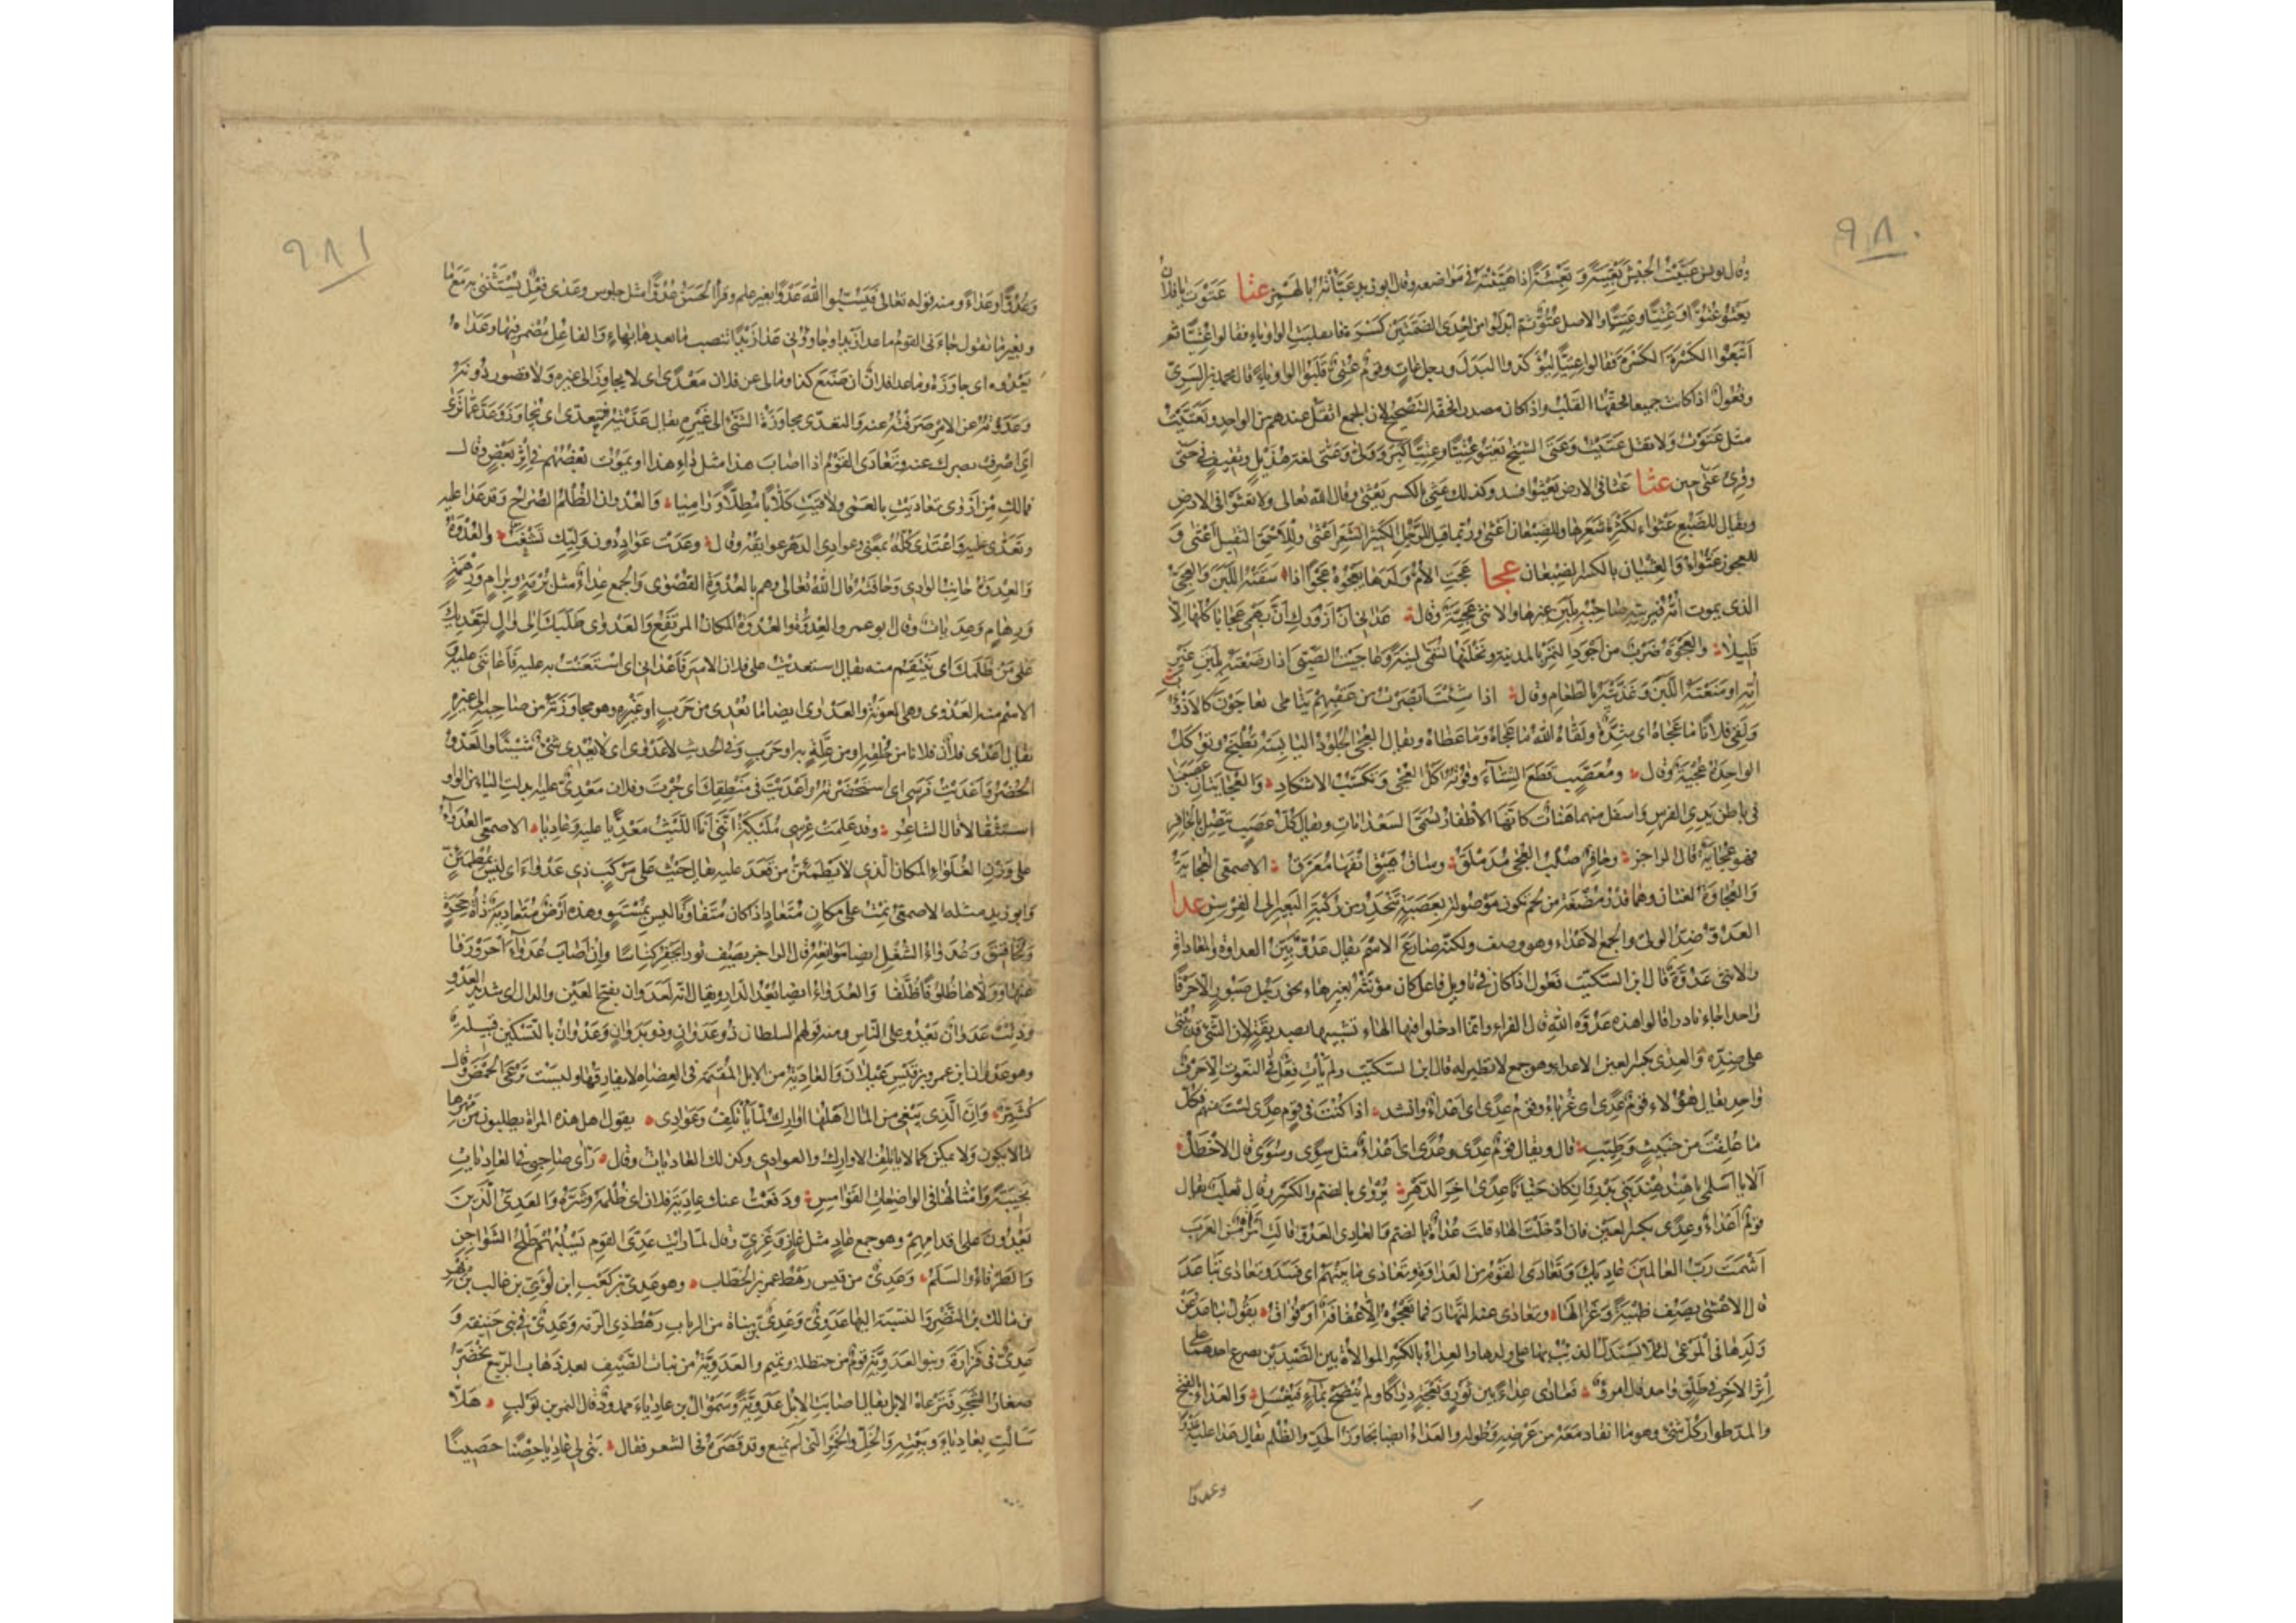 ٩٨٠
وقال يونس عبّيت الجيش تعبيةً وتعبئةً اذا هيّئته في مواضعه وقال ابو زيد عبأته بالهمز عتا عتوت يا فلان
تعتو عتوّا وعتيّا وعِتيّا والاصل عتوّ ثم ابدلوا من احدى الضمتين كسرة فانقلبت الواو ياء فقالوا عتيّا ثم
اتبعوا الكسرة الكسرة فقالوا عتيّا ليؤكدوا البدل ورجل عاتٍ وقوم عتيّ قلبوا الواو ياء قال محمد بن السري
وفعول اذا كانت جميعا فحقها القلب واذا كان مصدرا فحقه التصحيح لان الجمع اثقل عندهم من الواحد وتعتّيت
مثل عتوت ولا تقل عتيت وعتى الشيخ يعتو عتيّا وعتيّا كبر وولّى وعتى لغة هذيل وثقيف في حتى
وقرئ عتى حين عثا عثا في الارض يعثو افسد وكذلك عثي بالكسر يعثى وقال الله تعالى ولا تعثوا في الارض
ويقال للضبع عثواء لكثرة شعرها وللضبعان اعثى وربما قيل للرجل الكثير الشعر اعثى وللاحمق الثقيل اعثى و
للعجوز عثواء والعثيان بالكسر الضبعان عجا عجت الام ولدها تعجوه عجوا اذا سقته اللبن والعجيّ
الذي يموت امه فيربيه صاحبه بلبن غيرها والانثى عجيّة وقال عداني ان ازورك ان بهمي عجايا كلها الا
قليلا والعجوة ضرب من اجود التمر بالمدينة ونخلتها تسمى لينة وعاجيت الصبي اذا ارضعته بلبن غير
امه او منعته اللبن وغذيته بالطعام وقال اذا شئت ابصرت من عقبهم يتامى يعاجون كالاذؤب
ولقي فلان ما عجاه اي شدة ولقاه الله ما عجاه وما عظاه ويقال العجى الجلود اليابسة تطبخ وتؤكل
الواحدة عجية وقال ومعصب قطع الشتاء وقوته اكل العجى وتكسب الاشكاد والعجايتان عصبتان
في باطن يدي الفرس واسفل منهما هنات كانها الاظفار تسمى السعدانات ويقال كل عصب يتصل بالحافر
فهو عجاية قال الراجز وحافر صلب العجى مدملق وساق هيق انفها معرق الاصمعي العجاية
والعجاوة لغتان وهما قدر مضغة من لحم تكون موصولة بعصبة تنحدر من ركبة البعير الى الفرسن عدا
العدو ضد الولي والجمع الاعداء وهو وصف ولكنه ضارع الاسم يقال عدو بين العداوة والمعاداة
والانثى عدوة قال ابن السكيت فعول اذا كان في تاويل فاعل كان مؤنثه بغير هاء نحو رجل صبور الا حرفا
واحدا جاء نادرا قالوا هذه عدوة الله قال الفراء وانما ادخلوا فيها الهاء تشبيها بصديقة لان الشيء قد يبنى
على ضده والعدى بكسر العين الاعداء وهو جمع لا نظير له قال ابن السكيت ولم يأت فعل في النعوت الا حرف
واحد يقال هؤلاء قوم عدى اي غرباء وقوم عدى اي اعداء وانشد اذا كنت في قوم عدى لست منهم فكل
ما علفت من خبيث وطيب قال ويقال قوم عدى وعدى اي اعداء مثل سوى وسوى قال الاخطل
الا يا اسلمي يا هند هند بني بدر وان كان حيانا عدى اخر الدهر يروى بالضم والكسر وقال ثعلب يقال
قوم اعداء وعدى بكسر العين فان ادخلت الهاء قلت عداة بالضم والعادي العدو قالت امراة من العرب
اشمت رب العالمين عاديك وتعادى القوم من العداوة وتعادى ما بينهم اي فسد وتعادى تباعد
قال الاعشى يصف ظبية وغزالها وتعادى عنه النهار فما تعجوه الا عفافة او فواق يقول تباعد عن
ولدها في المرعى لئلا يستدل الذئب بها على ولدها والعداء بالكسر الموالاة بين الصيدين بصرع احدهما على
اثر الاخر في طلق واحد قال امرؤ فعادى عداء بين ثور ونعجة دراكا ولم ينضح بماء فيغسل والعداء بالفتح
والمد طوار كل شيء وهو ما انقاد معه من عرضه وطوله والعداء ايضا تجاوز الحد والظلم يقال عدا عليه عدوا
وعدوّا
٩٨١
وعدوّا وعداء ومنه قوله تعالى فيسبوا الله عدوا بغير علم وقرأ الحسن عدوّا مثل جلوس وعدى فعل يستثنى به مع ما
وبغير ما تقول جاءني القوم ما عدا زيدا وجاؤوني عدا زيدا تنصب ما بعدها بها والفاعل مضمر فيها وعداه
يعدوه اي جاوزه وما عدا فلان ان صنع كذا ومالي عن فلان معدى اي لا يجاوزني الى غيره ولا قصور دونه
وعدوته عن الامر صرفته عنه والتعدي مجاوزة الشيء الى غيره يقال عديته فتعدى اي تجاوز وعد عما ترى
اي اصرف بصرك عنه وتعادى القوم اذا اصاب هذا مثل داء هذا او يموت بعضهم في اثر بعض وقال
فمالك من اروى تعاديت بالعمى ولاقيت كلابا مطلا وراميا والعدوان الظلم الصراح وقد عدا عليه
وتعدى عليه واعتدى كله بمعنى وعوادي الدهر عوائقه وقال وعدت عواد دون وليك تشعب والعدوة
والعدوة جانب الوادي وحافته قال الله تعالى وهم بالعدوة القصوى والجمع عداء مثل برمة وبرام ورهمة
ورهام وعديات وقال ابو عمرو العدوة والعدوة المكان المرتفع والعدوى طلبك الى وال ليعديك
على من ظلمك اي ينتقم منه يقال استعديت على فلان الامير فاعداني اي استعنت به عليه فاعانني عليه و
الاسم منه العدوى وهي المعونة والعدوى ايضا ما يعدي من جرب او غيره وهو مجاوزته من صاحبه الى غيره
يقال اعدى فلان فلانا من خلقه او من علة به او جرب وفي الحديث لا عدوى اي لا يعدي شيء شيئا والعدو
الحضر واعديت فرسي اي استحضرته واعديت في منطقك اي جرت وفلان معدي عليه بدلت الياء من الواو
استثقالا قال الشاعر وقد علمت عرسي مليكة انني انا الليث معديا عليه وعاديا الاصمعي العدواء
على وزن الغلواء المكان الذي لا يطمئن من قعد عليه يقال جئت على مركب ذي عدواء اي ليس بمطمئن
وابو زيد مثله الاصمعي نمت على مكان متعاد اذا كان متفاوتا ليس بمستو وهذه ارض متعادية ذات جحرة
ولخافيق وعدواء الشغل ايضا موانعه قال الراجز يصف ثورا يحفر كناسا وان اصاب عدواء احرورفا
عنها وولاها ظلوفا ظلفا والعدواء ايضا بعد الدار ويقال انه لعدوان بفتح العين والدال اي شديد العدو
وذئب عدوان يعدو على الناس ومنه قولهم السلطان ذو عدوان وذو بدوان وعدوان بالتسكين قبيلة
وهو عدوان ابن عمرو بن قيس عيلان والعادية من الابل المقيمة في العضاه لا يفارقها وليست ترعى الحمض وقال
كثير وان الذي ينغي من المال اهلها اوارك لما تأتلف وعوادي يقول اهل هذه المرأة يطلبون من مهرها
ما لا يكون ولا يمكن كما لا يأتلف الاوارك والعوادي وكذلك العاديات وقال رأى صاحبي في العاديات
نجيبة وامثالها في الواضعات القوامس ودفعت عنك عادية فلان اي ظلمه وشره والعدي الذين
يعدون على اقدامهم وهو جمع عاد مثل غاز وغزي وقال لما رأيت عدي القوم يسلبهم طلح الشواجن
والطرفاء والسلم وعدي من قيس رهط عمر بن الخطاب وهو عدي بن كعب ابن لؤي بن غالب بن فهر
بن مالك بن النضر والنسبة اليها عدوي وعدي بن مناة من الرباب رهط ذي الرمة وعدي في بني حنيفة و
عدي في فزارة وبنو العدوية قوم من حنظلة وتميم والعدوية من نبات الصيف بعد ذهاب الربيع يخضر
صغار الشجر فترعاه الابل يقال اصابت الابل عدوية وسموأل بن عادياء ممدود قال النمر بن تولب هلا
سألت بعادياء وبيته والخل والخمر التي لم تمنع وقد قصره في الشعر فقال بنى لي عاديا حصنا حصينا